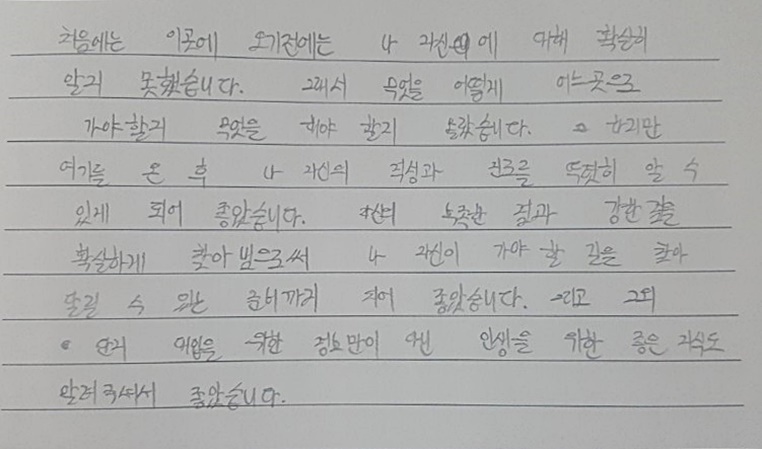 처음에는 이곳에 오기전에는 나 자신에 대해 확실히
알지 못했습니다. 그래서 무엇을 어떻게 어느곳으로
가야할지 무엇을 해야 할지 몰랐습니다. 하지만
여기를 온 후 나 자신의 적성과 진로를 뚜렷히 알 수
있게 되어 좋았습니다. 자신의 부족한 점과 강한 점을
확실하게 찾아 봄으로써 나 자신이 가야 할 길을 찾아
달릴 수 있는 준비까지 되어 좋았습니다. 그리고 그외
단지 대입을 위한 정보만이 아닌 인생을 위한 좋은 지식도
알려주셔서 좋았습니다.